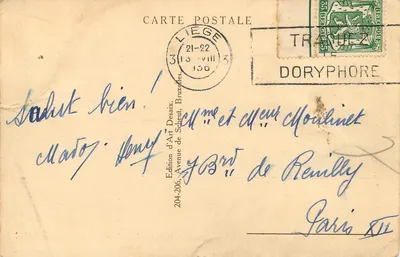 CARTE POSTALE
LIEGE
21-22
13 VIII
136
3 3
DORYPHORE
Salut bien!
Madoz Henry
Edition d'Art Desaix.
204-206, Avenue de Scheut, Bruxelles.
Mme et Meur Moulinet
7 Brd de Reuilly
Paris XII